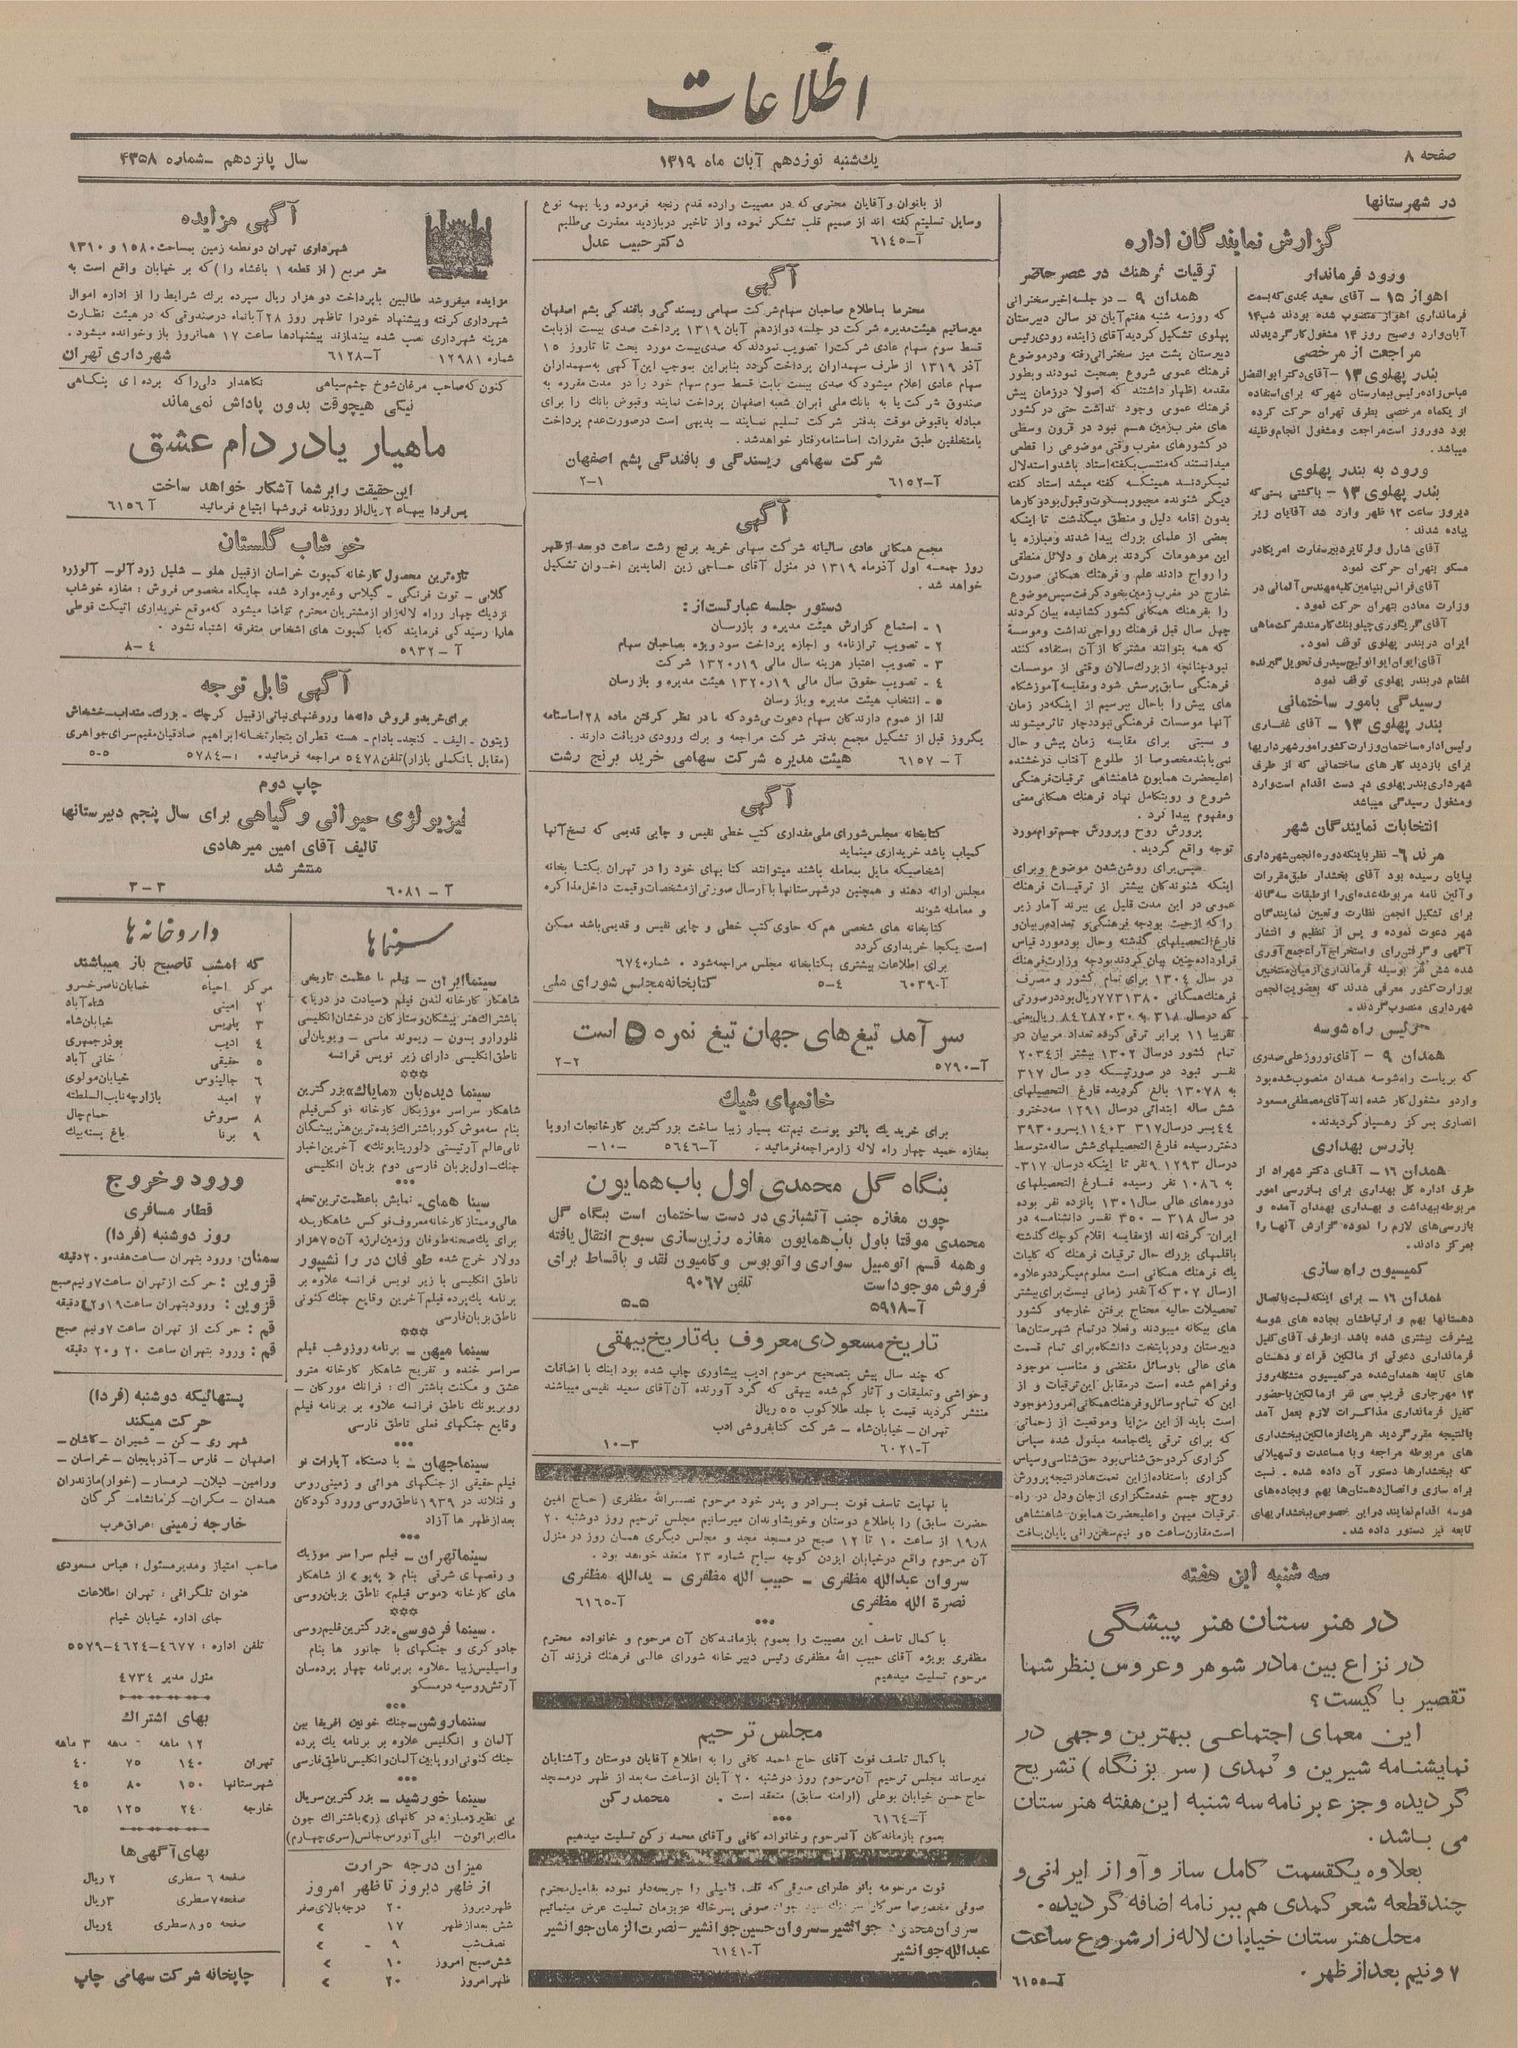 اطلاعات
صفحه ۸
یك‌شنبه نوزدهم آبان ماه ۱۳۱۹
سال پانزدهم ـ شماره ۴۳۵۸
در شهرستانها
گزارش نمایندگان اداره
ورود فرماندار
اهواز ۱۵ ـ آقای سعید نجدی که بسمت
فرمانداری اهواز منصوب شده بودند شب ۱۴
آبان وارد وصبح روز ۱۴ مشغول کار گردیدند
مراجعت از مرخصی
بندر پهلوی ۱۳ ـ آقای دکتر ابوالفضل
عباس زاده رئیس بیمارستان شهر که برای استفاده
از یکماه مرخصی بطرف تهران حرکت کرده
بود دوروز است مراجعت و مشغول انجام وظیفه
میباشد .
ورود به بندر پهلوی
بندر پهلوی ۱۳ ـ با کشتی پستی که
دیروز ساعت ۱۲ ظهر وارد شد آقایان زیر
پیاده شدند .
آقای شارل ولر تایر دبیر سفارت امریکا در
مسکو بتهران حرکت نمود
آقای فرانس بنیامین کلبه مهندس آلمانی در
وزارت معادن بتهران حرکت نمود .
آقای گریگوری چیلو بنك کارمند شرکت ماهی
ایران در بندر پهلوی توقف نمود .
اغنام در بندر پهلوی توقف نمود
رسیدگی بامور ساختمانی
بندر پهلوی ۱۳ ـ آقای غفاری
رئیس اداره ساختمان وزارت کشور امور شهرداریها
برای بازدید کار های ساختمانی که از طرف
شهرداری بندر پهلوی در دست اقدام است وارد
ومشغول رسیدگی میباشد
انتخابات نمایندگان شهر
مرند ۶ ـ نظر باینکه دوره انجمن شهرداری
بپایان رسیده بود آقای بخشدار طبق مقررات
وآئین نامه مربوطه عده‌ای را از طبقات سه گانه
برای تشکیل انجمن نظارت و تعیین نمایندگان
شهر دعوت نموده و پس از تنظیم و انتشار
آگهی و گرفتن رأی و استخراج آراء جمع آوری
شده شش نفر بوسیله فرمانداری از میان منتخبین
بوزارت کشور معرفی شدند که بعضویت انجمن
شهرداری منصوب گردند .
رئیس راه شوسه
همدان ۹ ـ آقای نوروز علی صدری
که بریاست راه شوسه همدان منصوب شده بود
واردو مشغول کار شده اند آقای مصطفی مسعود
انصاری بمرکز رهسپار گردیدند .
بازرس بهداری
همدان ۱۶ ـ آقای دکتر شهراد از
طرف اداره کل بهداری برای بازرسی امور
مربوطه بهداشت و بهداری بهمدان آمده و
بازرسی‌های لازم را نموده گزارش آنها را
بمرکز دادند .
کمیسیون راه سازی
همدان ۱۶ ـ برای اینکه نسبت باتصال
دهستانها بهم و ارتباطشان بجاده های شوسه
پیشرفت بیشتری شده باشد از طرف آقای کفیل
فرمانداری دعوتی از مالکین قراء و دهستان
های تابعه همدان شده در کمیسیون متشکله روز
۱۳ مهر جاری قریب سی نفر از مالکین با حضور
کفیل فرمانداری مذاکرات لازم بعمل آمد
بالنتیجه مقرر گردید هریك از مالکین ببخشداری
های مربوطه مراجعه و با مساعدت و تسهیلاتی
که ببخشدارها دستور آن داده شده . نسبت
براه سازی و اتصال دهستان‌ها بهم و بجاده‌های
شوسه اقدام نمایند در این خصوص ببخشداریهای
تابعه نیز دستور داده شد .
ترقیات فرهنك در عصر حاضر
همدان ۹ ـ در جلسه اخیر سخنرانی
که روز سه شنبه هفتم آبان در سالن دبیرستان
پهلوی تشکیل گردید آقای زاینده رودی رئیس
دبیرستان پشت میز سخنرانی رفته و در موضوع
فرهنك عمومی شروع بصحبت نمودند و بطور
مقدمه اظهار داشتند که اصولا در زمان پیش
فرهنك عمومی وجود نداشت حتی در کشور
های مغرب زمین هم نبود در قرون وسطی
در کشورهای مغرب وقتی موضوعی را قطعی
میدانستند که منتسب بگفته استاد باشد و استدلال
نمیکردند همینکه گفته میشد استاد گفته
دیگر شنونده مجبور بسکوت و قبول بود و کارها
بدون اقامه دلیل و منطق میگذشت تا اینکه
بعضی از علمای بزرك پیدا شدند و مبارزه با
این موهومات کردند برهان و دلائل منطقی
را رواج دادند علم و فرهنك همگانی صورت
خارج در مغرب زمین بخود گرفت سپس موضوع
را بفرهنك همگانی کشور کشانیده بیان کردند
چهل سال قبل فرهنك رواجی نداشت و موسسهٔ
که همه بتوانند مشترکا از آن استفاده کنند
نبود چنانچه از بزرك سالان وقتی از موسسات
فرهنگی سابق پرسش شود و مقایسه آموزشگاه
های پیش را با حال بپرسیم از اینکه در زمان
آنها موسسات فرهنگی نبود دچار تاثر میشوند
و نسبتی برای مقایسه زمان پیش و حال
نمی یابند مخصوصا از طلوع آفتاب درخشنده
اعلیحضرت همایون شاهنشاهی ترقیات فرهنگی
شروع و روبتکامل نهاد فرهنك همگانی معنی
ومفهوم پیدا کرد .
پرورش روح و پرورش جسم توام مورد
توجه واقع گردید .
سپس برای روشن شدن موضوع و برای
اینکه شنوندگان بیشتر از ترقیات فرهنك
عمومی در این مدت قلیل پی ببرند آمار زیر
را که از حیث بودجه فرهنگی و تعداد مربیان و
فارغ التحصیلهای گذشته و حال بود مورد قیاس
قرار داده چنین بیان کردند بودجه وزارت فرهنك
در سال ۱۳۰۴ برای تمام کشور و مصرف
فرهنك همگانی ۷۷۳۱۳۸۰ ریال بود در صورتی
که در سال ۳۱۸ به ۸۴۲۸۷۰۳۰ ریال یعنی
تقریبا ۱۱ برابر ترقی کرده تعداد مربیان در
تمام کشور در سال ۱۳۰۲ بیشتر از ۲۰۳۴
نفر نبود در صورتیکه در سال ۳۱۷
به ۱۳۰۷۸ بالغ گردیده فارغ التحصیلهای
شش ساله ابتدائی در سال ۱۲۹۱ سه دختر و
۴۴ پسر در سال ۳۱۷ ۱۱۴۰۳ پسر و ۳۹۳۰
دختر رسیده فارغ التحصیلهای شش ساله متوسط
در سال ۱۲۹۳ ۹ نفر تا اینکه در سال ۳۱۷ـ
به ۱۰۸۶ نفر رسیده فارغ التحصیلهای
دوره‌های عالی سال ۱۳۰۱ پانزده نفر بوده
در سال ۳۱۸ ـ ۳۵۰ نفر دانشنامه در
ایران گرفته اند از مقایسه اقلام کوچك گذشته
باقلمهای بزرك حال ترقیات فرهنك که کلیات
یك فرهنك همگانی است معلوم میگردد و علاوه
از سال ۳۰۷ که آنقدر زمانی نیست برای بیشتر
تحصیلات عالیه محتاج برفتن خارجه و کشور
های بیگانه میبودند و فعلا در تمام شهرستان‌ها
دبیرستان و در پایتخت دانشگاه برای تمام قسمت
های عالی با وسائل مقتضی و مناسب موجود
وفراهم شده است در مقابل این ترقیات و از
این که تمام وسائل و فرهنك همگانی امروز موجود
است باید از این مزایا و موقعیت از زحماتی
که برای ترقی یك جامعه مبذول شده سپاس
گزاری کرد و حق شناس بود حق شناسی و سپاس
گزاری با استفاده از این نعمت‌ها در نتیجه پرورش
روح و جسم خدمتگزاری از جان و دل در راه
ترقیات میهن و اعلیحضرت همایون شاهنشاهی
است مقارن ساعت دو نیم سخن رانی پایان یافت
سه شنبه این هفته
در هنرستان هنر پیشگی
در نزاع بین مادر شوهر و عروس بنظر شما
تقصیر با کیست ؟
این معمای اجتماعی ببهترین وجهی در
نمایشنامه شیرین و کمدی ( سر بزنگاه ) تشریح
گردیده و جزء برنامه سه شنبه این هفته هنرستان
می باشد .
بعلاوه یکقسمت کامل ساز و آواز ایرانی و
چند قطعه شعر کمدی هم ببرنامه اضافه گردیده .
محل هنرستان خیابان لاله زار شروع ساعت
۷ ونیم بعد از ظهر .
آ ـ ۶۱۵۵
از بانوان و آقایان محترمی که در مصیبت وارده قدم رنجه فرموده و یا بهمه نوع
وسایل تسلیتم گفته اند از صمیم قلب تشکر نموده و از تاخیر در بازدید معذرت می‌طلبم
آ ـ ۶۱۴۵ دکتر حبیب عدل
آگهی
محترما باطلاع صاحبان سهام شرکت سهامی ریسندگی و بافندگی پشم اصفهان
میرسانیم هیئت مدیره شرکت در جلسه دوازدهم آبان ۱۳۱۹ پرداخت صدی بیست از بابت
قسط سوم سهام عادی شرکت را تصویب نمودند که صدی بیست مورد بحث تا تاروز ۱۵
آذر ۱۳۱۹ از طرف سهمداران پرداخت گردد بنابراین بموجب این آگهی به سهمداران
سهام عادی اعلام میشود که صدی بیست بابت قسط سوم سهام خود را در مدت مقرره به
صندوق شرکت یا به بانك ملی ایران شعبه اصفهان پرداخت نمایند و قبوض بانك را برای
مبادله با قبوض موقت بدفتر شرکت تسلیم نمایند ـ بدیهی است در صورت عدم پرداخت
با متخلفین طبق مقررات اساسنامه رفتار خواهد شد .
شرکت سهامی ریسندگی و بافندگی پشم اصفهان
آ ـ ۶۱۵۲ ۱ ـ ۲
آگهی
مجمع همگانی عادی سالیانه شرکت سهامی خرید برنج رشت ساعت دو بعد از ظهر
روز جمعه اول آذر ماه ۱۳۱۹ در منزل آقای حاجی زین العابدین اخوان تشکیل
خواهد شد .
دستور جلسه عبارتست از :
۱ ـ استماع گزارش هیئت مدیره و بازرسان
۲ ـ تصویب ترازنامه و اجازه پرداخت سود ویژه بصاحبان سهام
۳ ـ تصویب اعتبار هزینه سال مالی ۱۹ر۱۳۲۰ شرکت
۴ ـ تصویب حقوق سال مالی ۱۹ر۱۳۲۰ هیئت مدیره و بازرسان
۵ ـ انتخاب هیئت مدیره و بازرسان
لذا از عموم دارندگان سهام دعوت می‌شود که با در نظر گرفتن ماده ۲۸ اساسنامه
یکروز قبل از تشکیل مجمع بدفتر شرکت مراجعه و برك ورودی دریافت دارند .
آ ـ ۶۱۵۷ هیئت مدیره شرکت سهامی خرید برنج رشت
آگهی
کتابخانه مجلس شورای ملی مقداری کتب خطی نفیس و چاپی قدیمی که نسخ آنها
کمیاب باشد خریداری مینماید
اشخاصیکه مایل بمعامله باشند میتوانند کتابهای خود را در تهران بکتابخانه
مجلس ارائه دهند و همچنین در شهرستانها با ارسال صورتی از مشخصات و قیمت داخل مذاکره
و معامله شوند
کتابخانه های شخصی هم که حاوی کتب خطی و چاپی نفیس و قدیمی باشد ممکن
است یکجا خریداری گردد
برای اطلاعات بیشتری بکتابخانه مجلس مراجعه شود . شماره ۶۷۴۰
آ ـ ۶۰۳۹ ۴ ـ ۵ کتابخانه مجلس شورای ملی
سر آمد تیغ‌های جهان تیغ نمره ۵ است
آ ـ ۵۷۹۰ ۲ ـ ۲
خانمهای شیك
برای خرید یك پالتو پوست نیم‌تنه بسیار زیبا ساخت بزرگترین کارخانجات اروپا
بمغازه حمید چهار راه لاله زار مراجعه فرمائید . آ ـ ۵۶۴۶ ـ ۱۰ ـ
بنگاه گل محمدی اول باب همایون
چون مغازه جنب آتشبازی در دست ساختمان است بنگاه گل
محمدی موقتا باول باب همایون مغازه رزین‌سازی سبوح انتقال یافته
وهمه قسم اتومبیل سواری و اتوبوس و کامیون نقد و باقساط برای
فروش موجود است تلفن ۹۰۶۷
آ ـ ۵۹۱۸ ۵ ـ ۵
تاریخ مسعودی معروف به تاریخ بیهقی
که چند سال پیش بتصحیح مرحوم ادیب پیشاوری چاپ شده بود اینك با اضافات
وحواشی و تعلیقات و آثار گم شده بیهقی که گرد آورنده آن آقای سعید نفیسی میباشند
منتشر گردید قیمت با جلد طلاکوب ۵۵ ریال
تهران ـ خیابان شاه ـ شرکت کتابفروشی ادب
آ ـ ۶۰۲۱ ۳ ـ ۱۰
با نهایت تاسف فوت برادر و پدر خود مرحوم نصرالله مظفری ( حاج امین
حضرت سابق) را باطلاع دوستان و خویشاوندان میرسانیم مجلس ترحیم روز دوشنبه ۲۰
۸ر۱۹ از ساعت ۱۰ تا ۱۲ صبح در مسجد مجد و مجلس دیگری همان روز در منزل
آن مرحوم واقع در خیابان ایزدن کوچه سیاح شماره ۲۳ منعقد خواهد بود .
سروان عبدالله مظفری ـ حبیب الله مظفری ـ یدالله مظفری
نصرة الله مظفری آ ـ ۶۱۶۵
با کمال تاسف این مصیبت را بعموم بازماندگان آن مرحوم و خانواده محترم
مظفری بویژه آقای حبیب الله مظفری رئیس دبیر خانه شورای عالی فرهنك فرزند آن
مرحوم تسلیت میدهیم
مجلس ترحیم
با کمال تاسف فوت آقای حاج احمد کافی را به اطلاع آقایان دوستان و آشنایان
میرساند مجلس ترحیم آن مرحوم روز دوشنبه ۲۰ آبان از ساعت سه بعد از ظهر در مسجد
حاج حسن خیابان بوعلی (ارامنه سابق) منعقد است . محمد رکن
آ ـ ۶۱۶۴
بعموم بازماندگان آنمرحوم و خانواده کافی و آقای محمد رکن تسلیت میدهیم
فوت مرحومه بانو عذرای صوفی که قلب فامیلی را جریحه‌دار نموده بفامیل محترم
صوفی مخصوصا سرکار سرهنك سید جواد صوفی پسر خاله عزیزمان تسلیت عرض مینمائیم
سروان محمدی جوانشیر ـ سروان حسین جوانشیر ـ نصرت الزمان جوانشیر
عبدالله جوانشیر آ ـ ۶۱۴۱
آگهی مزایده
شهرداری تهران دو قطعه زمین بمساحت ۱۵۸۰ و ۱۳۱۰
متر مربع ( از قطعه ۱ باغشاه را ) که بر خیابان واقع است به
مزایده میفروشد طالبین با پرداخت دو هزار ریال سپرده برك شرایط را از اداره اموال
شهرداری گرفته و پیشنهاد خود را تا ظهر روز ۲۸ آبانماه در صندوقی که در هیئت نظارت
هزینه شهرداری نصب شده بیندازند پیشنهادها ساعت ۱۷ همانروز باز و خوانده میشود .
شماره ۱۲۹۸۱ آ ـ ۶۱۲۸ شهرداری تهران
کنون که صاحب مژگان شوخ چشم سیاهی نگاهدار دلی را که برده ای بنگاهی
نیکی هیچوقت بدون پاداش نمی‌ماند
ماهیار یا در دام عشق
این حقیقت را بر شما آشکار خواهد ساخت
پس فردا ببهاء ۲ ریال از روزنامه فروشها ابتیاع فرمائید آ ـ ۶۱۵۶
خوشاب گلستان
تازه ترین محصول کارخانه کمپوت خراسان از قبیل هلو ـ شلیل زرد آلو ـ آلو زرد
گلابی ـ توت فرنگی ـ گیلاس و غیره وارد شده جایگاه مخصوص فروش : مغازه خوشاب
نزدیك چهار راه لاله زار از مشتریان محترم تقاضا میشود که موقع خریداری اتیکت قوطی
هارا رسیدگی فرمایند که با کمپوت های اشخاص متفرقه اشتباه نشود .
آ ـ ۵۹۳۲ ۴ ـ ۸
آگهی قابل توجه
برای خرید و فروش دانه‌ها و روغنهای نباتی از قبیل کرچك ـ بزرك ـ منداب ـ خشخاش
زیتون ـ الیف ـ کنجد ـ بادام ـ هسته قطران بتجارتخانه ابراهیم صادقیان مقیم سرای جواهری
(مقابل بانك ملی بازار) تلفن ۵۴۷۸ مراجعه فرمائید . آ ـ ۵۷۸۴ ۵ ـ ۵
چاپ دوم
فیزیولوژی حیوانی و گیاهی برای سال پنجم دبیرستانها
تالیف آقای امین میرهادی
منتشر شد
آ ـ ۶۰۸۱ ۳ ـ ۳
سینماها
سینما ایران ـ فیلم با عظمت تاریخی
شاهکار کارخانه لندن فیلم «سیادت در دریا»
باشتراك هنر پیشگان و ستارگان درخشان انگلیسی
فلورا رو بسون ـ ریموند ماسی ـ ویویان لی
ناطق انگلیسی دارای زیر نویس فرانسه
***
سینما دیده‌بان «مایاك» بزرگترین
شاهکار سراسر موزیکال کارخانه فوکس فیلم
بنام سه موش کور باشتراك زبده ترین هنرپیشگان
نامی عالم آرتیستی «لوریتا یونك» آخرین اخبار
جنك ـ اول بزبان فارسی دوم بزبان انگلیسی
***
سینما همای . نمایش با عظمت ترین تحفه
عالی و ممتاز کارخانه معروف فوکس شاهکاریکه
برای یك صحنه طوفان و زمین لرزه آن ۷۵ هزار
دولار خرج شده طوفان در رانشیپور
ناطق انگلیسی با زیر نویس فرانسه علاوه بر
برنامه یك پرده فیلم آخرین وقایع جنك کنونی
ناطق بزبان فارسی
***
سینما میهن ـ برنامه روز و شب فیلم
سراسر خنده و تفریح شاهکار کارخانه مترو
عشق و مکنت باشتراك : فرانك مورگان ـ
روبر یونك ناطق فرانسه علاوه بر برنامه فیلم
وقایع جنگهای فعلی ناطق فارسی
***
سینما جهان ـ با دستگاه آپارات نو
فیلم حقیقی از جنگهای هوائی و زمینی روس
و فنلاند در ۱۹۳۹ ناطق روسی ورود کودکان
بعد از ظهر ها آزاد
***
سینما تهران ـ فیلم سراسر موزیك
و رقصهای شرقی بنام « په‌پو » از شاهکار
های کارخانه «موس فیلم» ناطق بزبان روسی
***
سینما فردوسی . بزرگترین فلیم روسی
جادوگری و جنگهای با جانور ها بنام
واسیلیس زیبا . علاوه بر برنامه چهار پرده سان
آرتش روسیه در مسکو
***
سینما روشن ـ جنك خونین افریقا بین
آلمان و انگلیس علاوه بر برنامه یك پرده
جنك کنونی اروپا بین آلمان و انگلیس ناطق فارسی
***
سینما خورشید ـ بزرگترین سریال
بی نظیر «مبارزه در کانهای زر» باشتراك جون
ماك براون ـ ایلی آنورس جانس (سری چهارم)
میزان درجه حرارت
از ظهر دیروز تا ظهر امروز
ظهر دیروز ۲۰ درجه بالای صفر
شش بعد از ظهر ۱۷ »
نصف شب ۹ - »
شش صبح امروز ۱۰ »
ظهر امروز ۲۰ »
داروخانه ها
که امشب تا صبح باز میباشند
مرکز احیاء خیابان ناصر خسرو
۲ امینی شاه آباد
۳ پاریس خیابان شاه
۴ ادیب بوذرجمهری
۵ حقیقی خانی آباد
۶ جالینوس خیابان مولوی
۷ امید بازارچه نایب السلطنه
۸ سروش حمام چال
۹ برنا باغ پسته بیك
ورود و خروج
قطار مسافری
روز دوشنبه (فردا)
سمنان: ورود بتهران ساعت هفده و ۲۰ دقیقه
قزوین : حرکت از تهران ساعت ۷ و نیم صبح
قزوین : ورود بتهران ساعت ۱۹ و ۲ دقیقه
قم : حرکت از تهران ساعت ۷ و نیم صبح
قم : ورود بتهران ساعت ۲۰ و ۲۰ دقیقه
پستهائیکه دوشنبه (فردا)
حرکت میکند
شهر ری ـ کن ـ شمیران ـ کاشان ـ
اصفهان ـ فارس ـ آذربایجان ـ خراسان ـ
ورامین ـ گیلان ـ گرمسار ـ (خوار) مازندران
همدان ـ مکران ـ کرمانشاه ـ گرگان
خارجه زمینی : عراق عرب
صاحب امتیاز و مدیر مسئول : عباس مسعودی
عنوان تلگرافی : تهران اطلاعات
جای اداره خیابان خیام
تلفن اداره : ۴۶۷۷ ـ ۴۶۲۴ ـ ۵۵۷۹
منزل مدیر ۴۷۳۴
بهای اشتراك
۱۲ ماهه ۶ ماهه ۳ ماهه
تهران ۱۴۰ ۷۵ ۴۰
شهرستانها ۱۵۰ ۸۰ ۴۵
خارجه ۲۴۰ ۱۲۵ ۶۵
بهای آگهی‌ها
صفحه ۶ سطری ۲ ریال
صفحه ۷ سطری ۳ ریال
صفحه ۵ و ۸ سطری ۴ ریال
چاپخانه شرکت سهامی چاپ